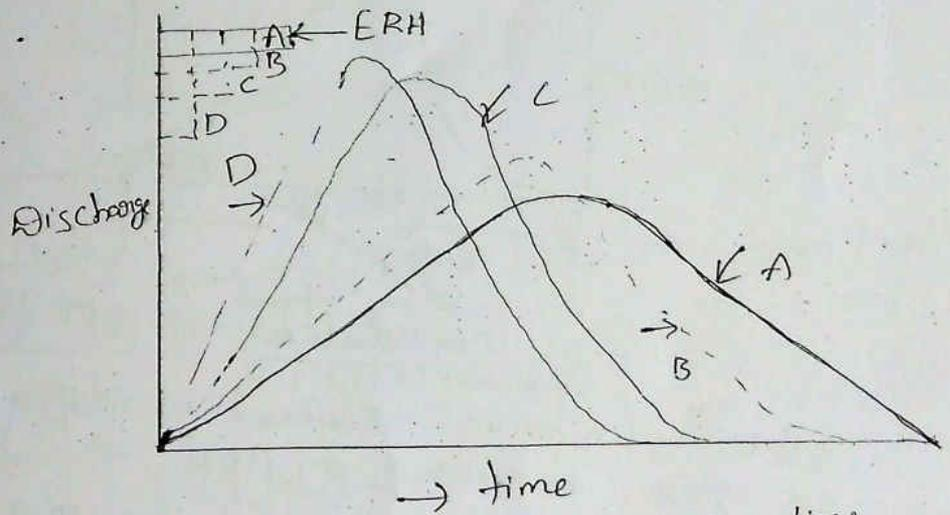 A ← ERH
B
C
D
D
→
C
Discharge
A
→
B
→ time